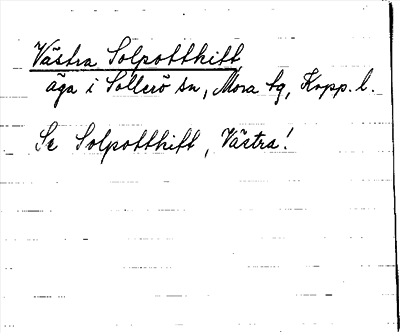 Västra Solpotthitt,
äga i Sollerö sn, Mora tg, Kopp. l.
Se Solpotthitt, Västra!